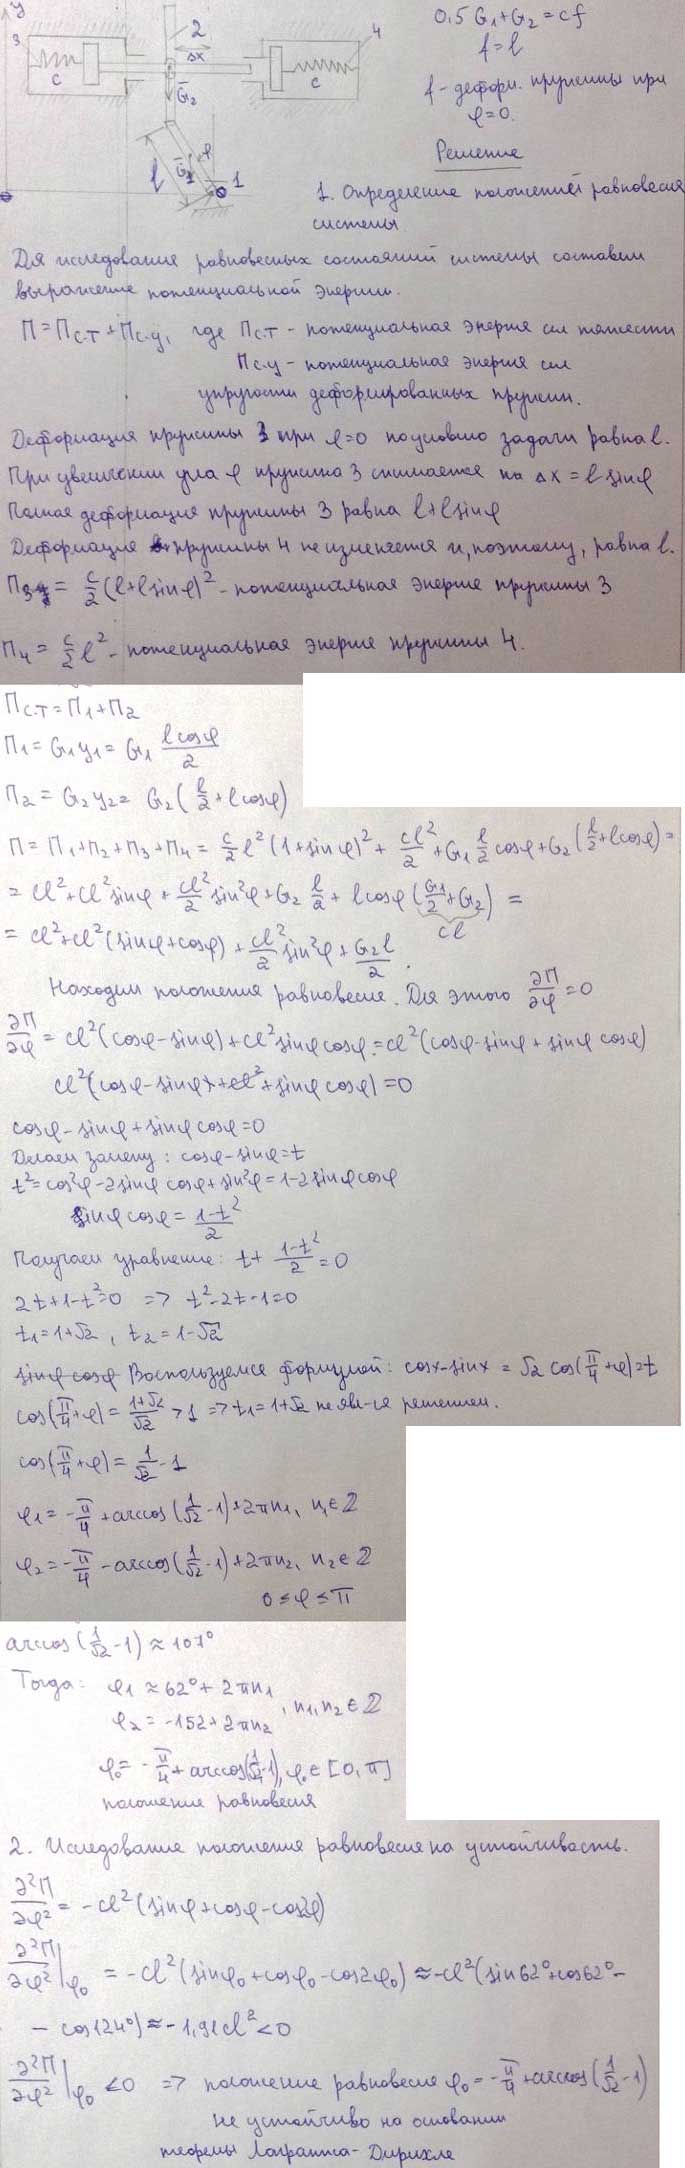 y
3
2
Δx
4
c
c
G₂
l
G₁
φ
1
0,5 G₁+G₂ = cf
f = l
f - дефори. пружины при
φ=0.
Решение
1. Определение положений равновесия
системы.
Для исследования равновесных состояний системы составим
выражение потенциальной энергии.
П = Пс.т + Пс.у, где Пс.т - потенциальная энергия сил тяжести
Пс.у - потенциальная энергия сил
упругости деформированных пружин.
Деформация пружины 3 при φ=0 по условию задачи равна l.
При увеличении угла φ пружина 3 сжимается на Δx = l sinφ
Полная деформация пружины 3 равна l+l sinφ
Деформация пружины 4 не изменяется и, поэтому, равна l.
П₃ = c/2 (l+l sinφ)² - потенциальная энергия пружины 3
П₄ = c/2 l² - потенциальная энергия пружины 4.
Пс.т = П₁+П₂
П₁ = G₁y₁ = G₁ l cosφ/2
П₂ = G₂y₂ = G₂ (l/2 + l cosφ)
П = П₁+П₂+П₃+П₄ = c/2 l² (1+sinφ)² + cl²/2 + G₁ l/2 cosφ + G₂ (l/2 + l cosφ) =
= cl² + cl² sinφ + cl²/2 sin²φ + G₂ l/2 + l cosφ (G₁/2 + G₂) =
cl
= cl² + cl² (sinφ + cosφ) + cl²/2 sin²φ + G₂l/2.
Находим положения равновесия. Для этого ∂П/∂φ = 0
∂П/∂φ = cl² (cosφ - sinφ) + cl² sinφ cosφ = cl² (cosφ - sinφ + sinφ cosφ)
cl² (cosφ - sinφ + sinφ cosφ) = 0
cosφ - sinφ + sinφ cosφ = 0
Делаем замену: cosφ - sinφ = t
t² = cos²φ - 2 sinφ cosφ + sin²φ = 1 - 2 sinφ cosφ
sinφ cosφ = (1-t²)/2
Получаем уравнение: t + (1-t²)/2 = 0
2t + 1 - t² = 0 => t² - 2t - 1 = 0
t₁ = 1+√2, t₂ = 1-√2
sinφ cosφ Воспользуемся формулой: cosx - sinx = √2 cos(π/4 + φ) = t
cos(π/4 + φ) = (1+√2)/√2 > 1 => t₁ = 1+√2 не явл-ся решением.
cos(π/4 + φ) = 1/√2 - 1
φ₁ = -π/4 + arccos(1/√2 - 1) + 2πn₁, n₁∈ℤ
φ₂ = -π/4 - arccos(1/√2 - 1) + 2πn₂, n₂∈ℤ
0 ≤ φ ≤ π
arccos(1/√2 - 1) ≈ 107°
Тогда: φ₁ ≈ 62° + 2πn₁
φ₂ = -152 + 2πn₂, n₁, n₂ ∈ ℤ
φ₀ = -π/4 + arccos(1/√2 - 1), φ₀ ∈ [0, π]
положение равновесия
2. Исследование положения равновесия на устойчивость.
∂²П/∂φ² = -cl² (sinφ + cosφ - cos2φ)
∂²П/∂φ² |φ₀ = -cl² (sinφ₀ + cosφ₀ - cos2φ₀) ≈ -cl² (sin62° + cos62° -
- cos124°) ≈ -1,91cl² < 0
∂²П/∂φ² |φ₀ < 0 => положение равновесия φ₀ = -π/4 + arccos(1/√2 - 1)
не устойчиво на основании
теоремы Лагранжа - Дирихле